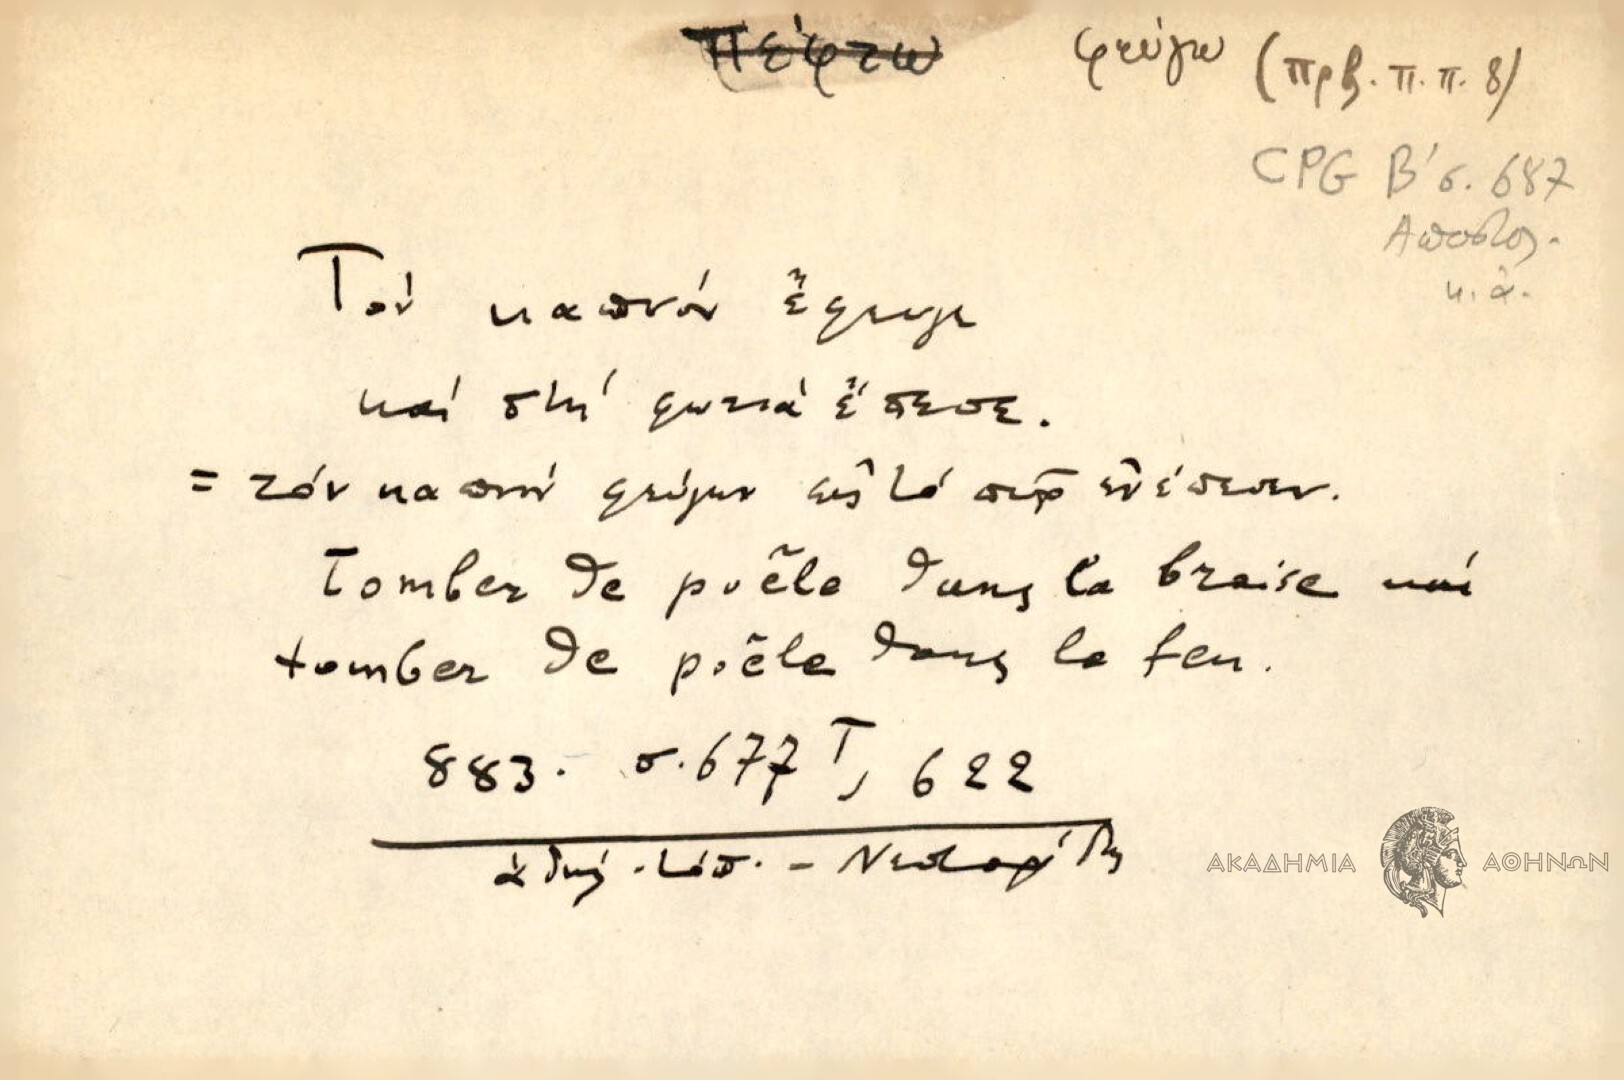 πέφτω φεύγω (πρβ. π. π. 8)
CPG Β' σ. 687
Αποστολ.
κ.ἀ.
Τόν καπνόν ἔφευγε
καί στή φωτιά ἔπεσε.
= τόν καπνόν φεύγων εἰς τό πῦρ ἐνέπεσεν.
Tomber de poêle dans la braise καί
tomber de poêle dans le feu.
883. σ. 677 Τ, 622
ἀδήλ. τόπ. -
ΑΚΑΔΗΜΙΑ ΑΘΗΝΩΝ